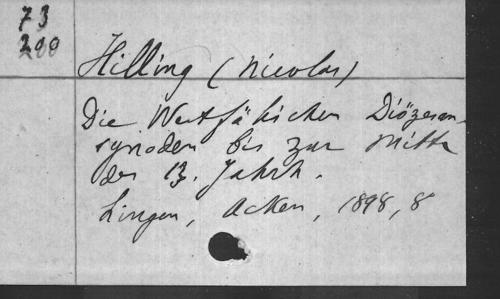 73
200
Hilling (Nicolas)
Die Westfälischen Diözesan-
synoden bis zur Mitte
des 13. Jahrh.
Lingen, Acken, 1898, 8